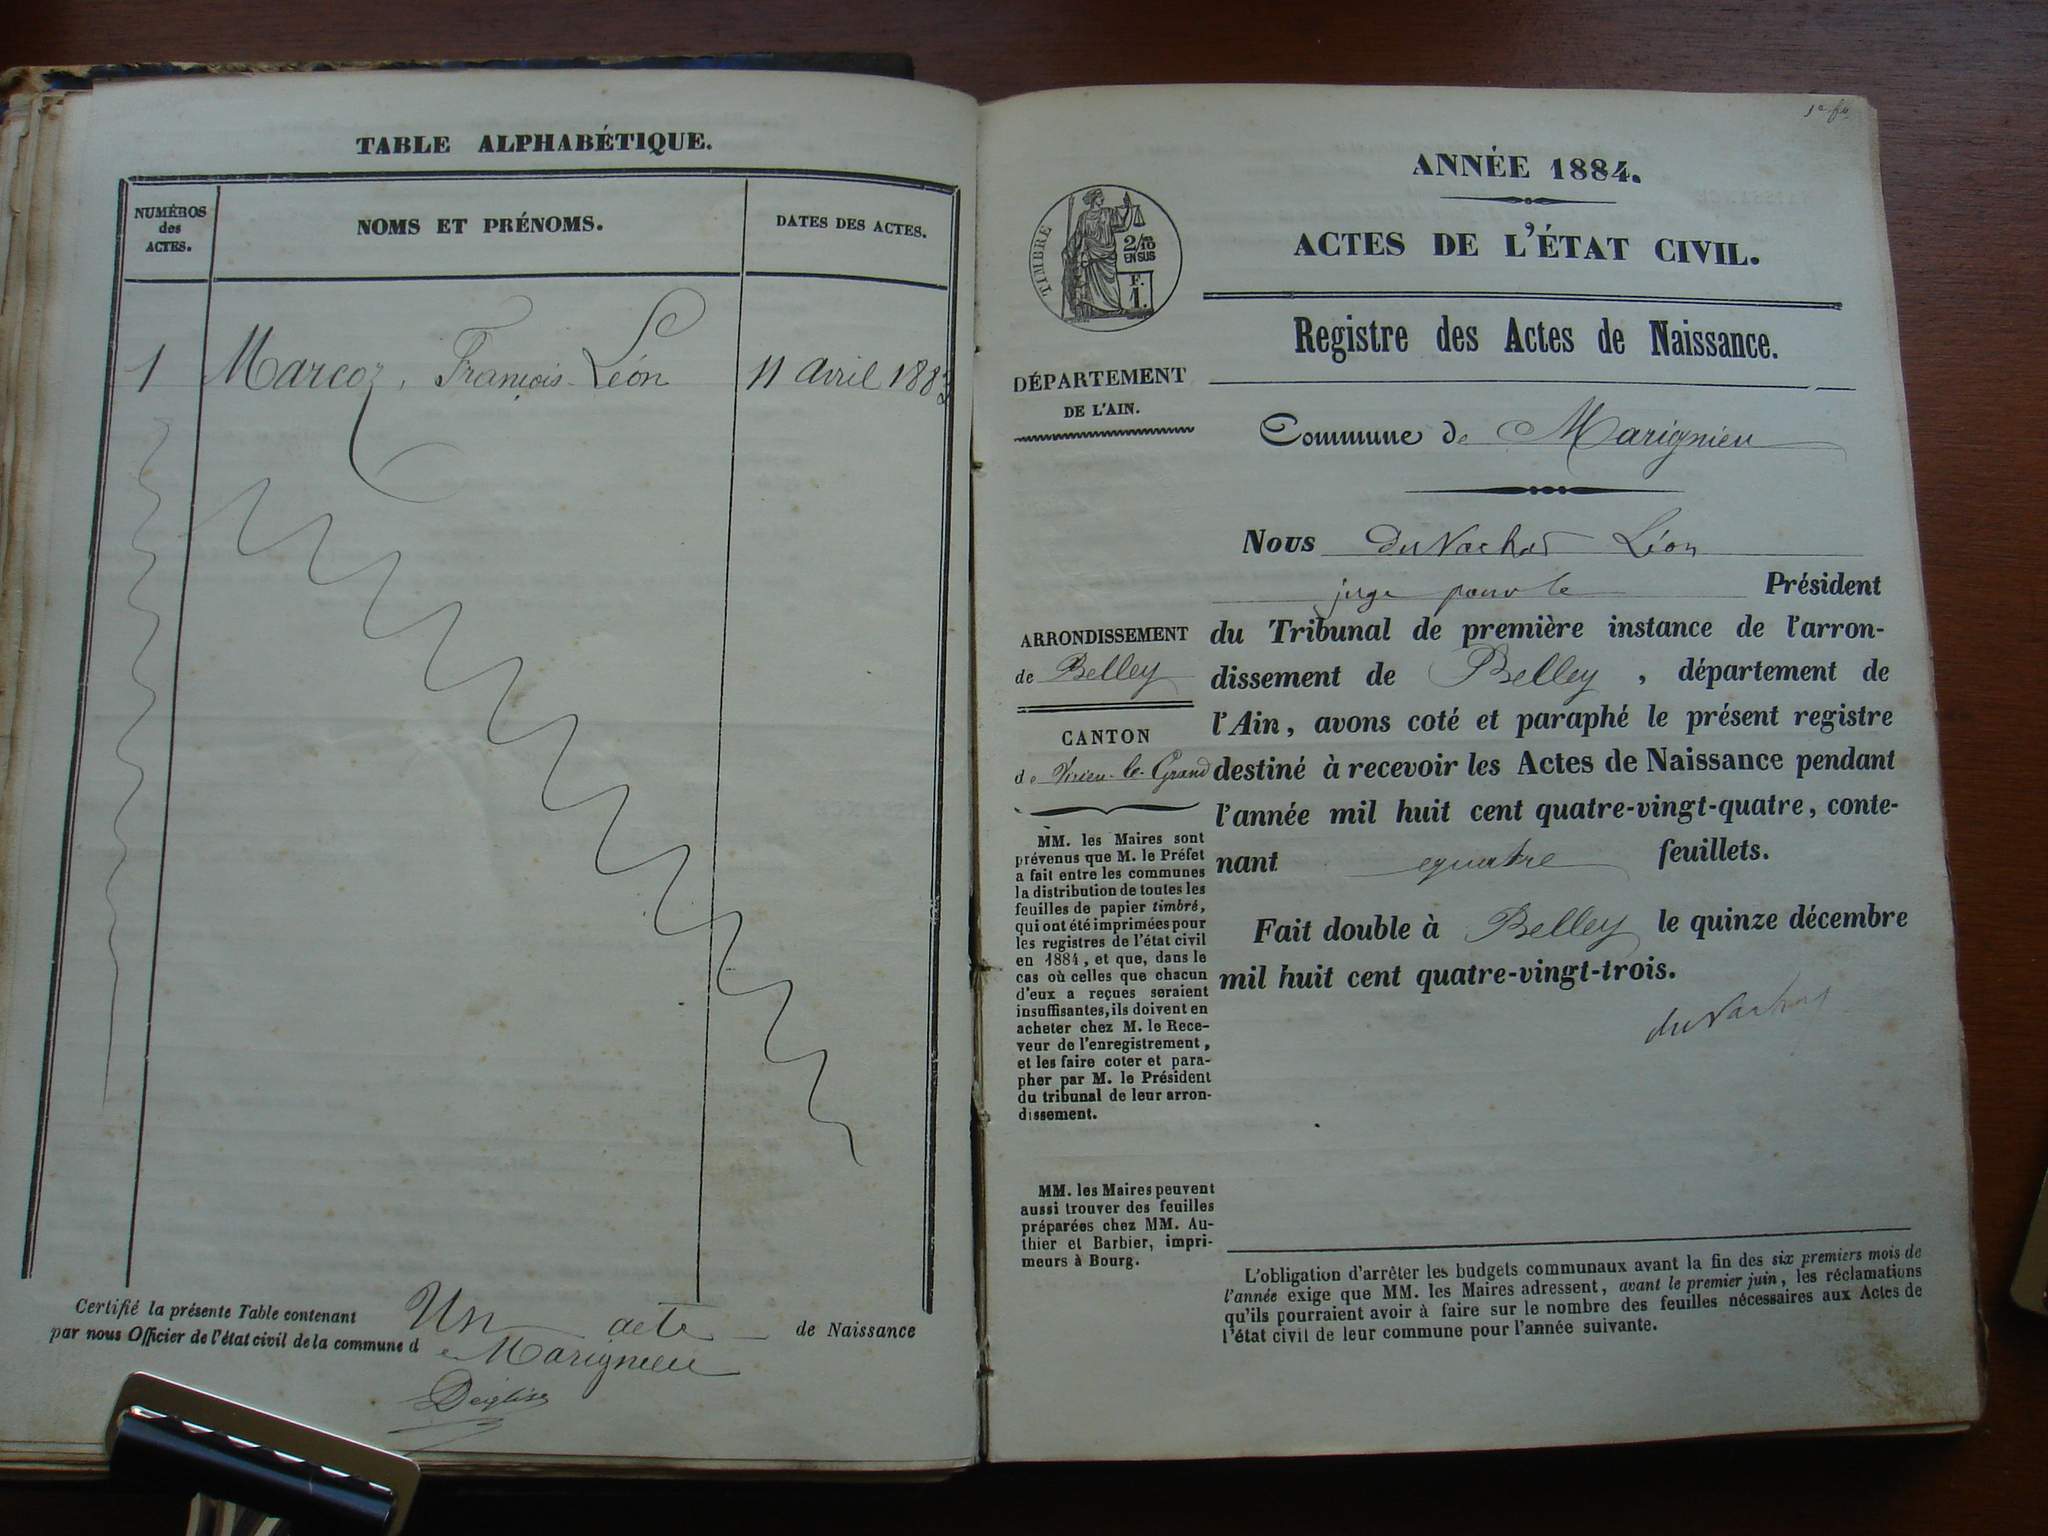 TABLE ALPHABÉTIQUE.
NUMÉROS
des
ACTES.
NOMS ET PRÉNOMS.
DATES DES ACTES.
1 Marcoz, François-Léon 11 avril 1883
Certifié la présente Table contenant Un acte de Naissance
par nous Officier de l'état civil de la commune de Marignieu
Déglise
1er ft
ANNÉE 1884.
ACTES DE L'ÉTAT CIVIL.
TIMBRE
2/10
EN SUS
F.
1.
Registre des Actes de Naissance.
DÉPARTEMENT
DE L'AIN.
Commune de Marignieu
Nous du Vachat Léon
juge pour le Président
du Tribunal de première instance de l'arron-
dissement de Belley, département de
l'Ain, avons coté et paraphé le présent registre
destiné à recevoir les Actes de Naissance pendant
l'année mil huit cent quatre-vingt-quatre, conte-
nant quatre feuillets.
Fait double à Belley le quinze décembre
mil huit cent quatre-vingt-trois.
du Vachat
ARRONDISSEMENT
de Belley
CANTON
de Virieu-le-Grand
MM. les Maires sont
prévenus que M. le Préfet
a fait entre les communes
la distribution de toutes les
feuilles de papier timbré,
qui ont été imprimées pour
les registres de l'état civil
en 1884, et que, dans le
cas où celles que chacun
d'eux a reçues seraient
insuffisantes, ils doivent en
acheter chez M. le Rece-
veur de l'enregistrement,
et les faire coter et para-
pher par M. le Président
du tribunal de leur arron-
dissement.
MM. les Maires peuvent
aussi trouver des feuilles
préparées chez MM. Au-
thier et Barbier, impri-
meurs à Bourg.
L'obligation d'arrêter les budgets communaux avant la fin des six premiers mois de
l'année exige que MM. les Maires adressent, avant le premier juin, les réclamations
qu'ils pourraient avoir à faire sur le nombre des feuilles nécessaires aux Actes de
l'état civil de leur commune pour l'année suivante.